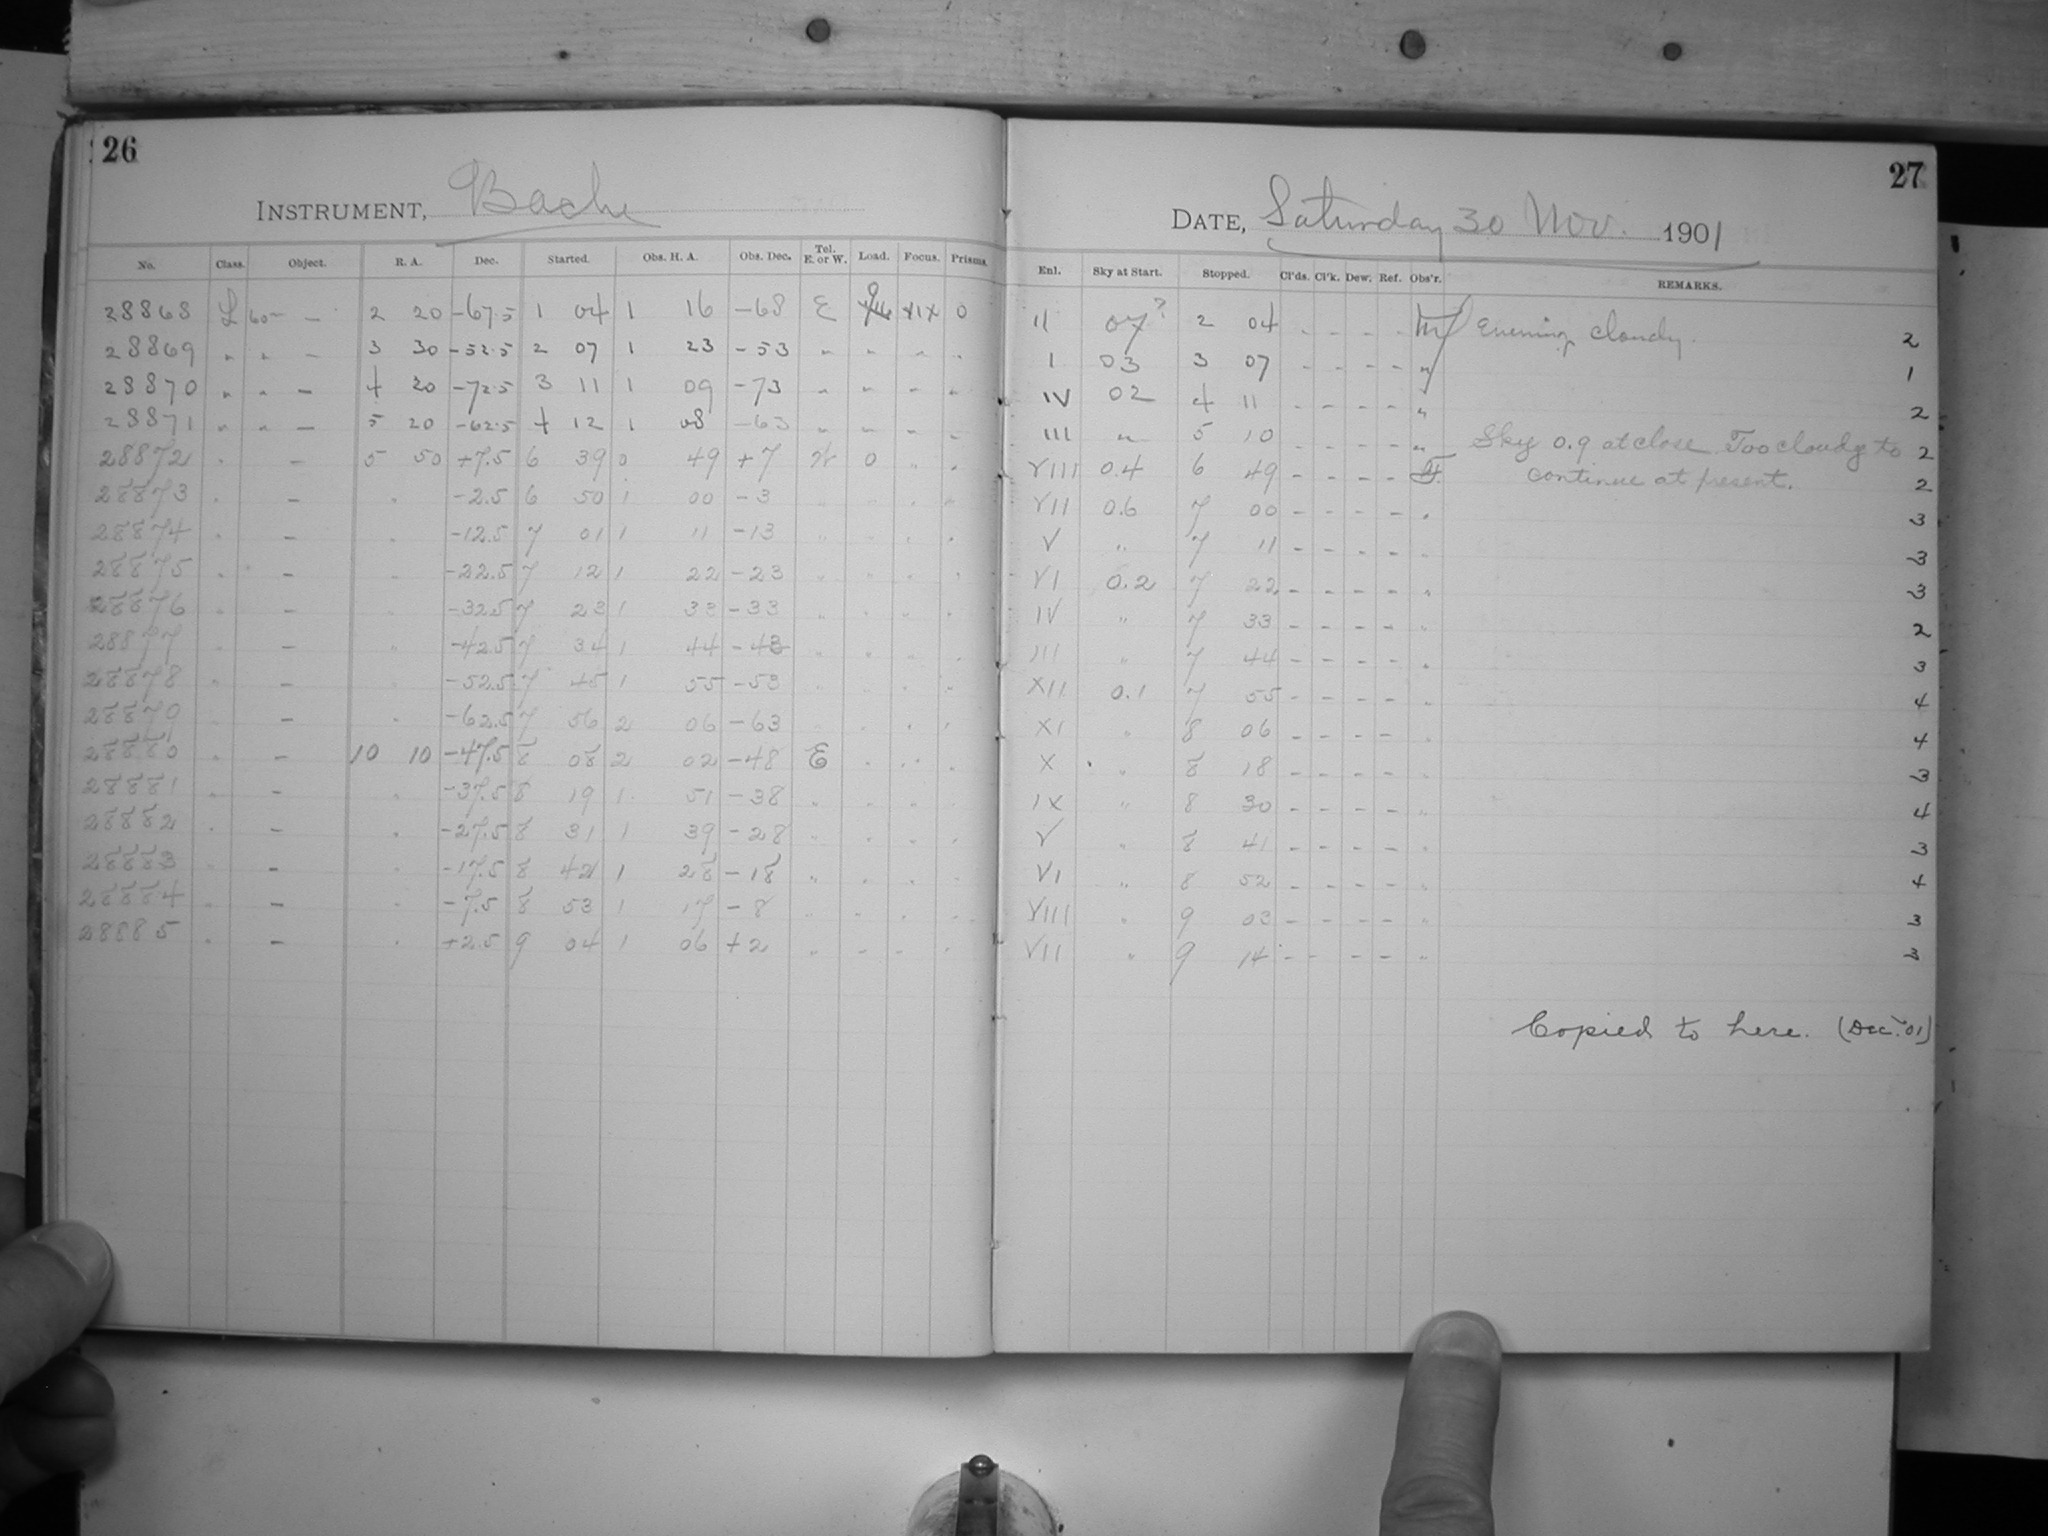 26
INSTRUMENT, Bache
No. Class. Object. R. A. Dec. Started. Obs. H. A. Obs. Dec. Tel. E. or W. Load. Focus. Prisms.
28868 L 60m – 2 20 -67.5 1 04 1 16 -68 E XIX 0
28869 " " – 3 30 -52.5 2 07 1 23 -53 " " " "
28870 " " – 4 20 -72.5 3 11 1 09 -73 " " " "
28871 " " – 5 20 -62.5 4 12 1 08 -63 " " " "
28872 " – 5 50 +7.5 6 39 0 49 +7 W 0 " "
28873 " – " -2.5 6 50 1 00 -3 " " " "
28874 " – " -12.5 7 01 1 11 -13 " " " "
28875 " – " -22.5 7 12 1 22 -23 " " " "
28876 " – " -32.5 7 23 1 33 -33 " " " "
28877 " – " -42.5 7 34 1 44 -43 " " " "
28878 " – " -52.5 7 45 1 55 -53 " " " "
28879 " – " -62.5 7 56 2 06 -63 " " " "
28880 " – 10 10 -47.5 8 08 2 02 -48 E " " "
28881 " – " -37.5 8 19 1 51 -38 " " " "
28882 " – " -27.5 8 31 1 39 -28 " " " "
28883 " – " -17.5 8 42 1 28 -18 " " " "
28884 " – " -7.5 8 53 1 17 -8 " " " "
28885 " – " +2.5 9 04 1 06 +2 " " " "
27
DATE, Saturday 30 Nov. 1901
Enl. Sky at Start. Stopped. Cl'ds. Cl'k. Dew. Ref. Obs'r. REMARKS.
II 07? 2 04 - - - - Evening cloudy. 2
I 03 3 07 - - - - " 1
IV 02 4 11 - - - - " 2
III " 5 10 - - - - " Sky 0.9 at close. Too cloudy to 2
VIII 0.4 6 49 - - - - continue at present. 2
VII 0.6 7 00 - - - - " 3
V " 7 11 - - - - " 3
VI 0.2 7 22 - - - - " 3
IV " 7 33 - - - - " 2
III " 7 44 - - - - " 3
XII 0.1 7 55 - - - - " 4
XI " 8 06 - - - - " 4
X " 8 18 - - - - " 3
IX " 8 30 - - - - " 4
V " 8 41 - - - - " 3
VI " 8 52 - - - - " 4
VIII " 9 03 - - - - " 3
VII " 9 14 - - - - " 3
Copied to here. (Dec. '01)